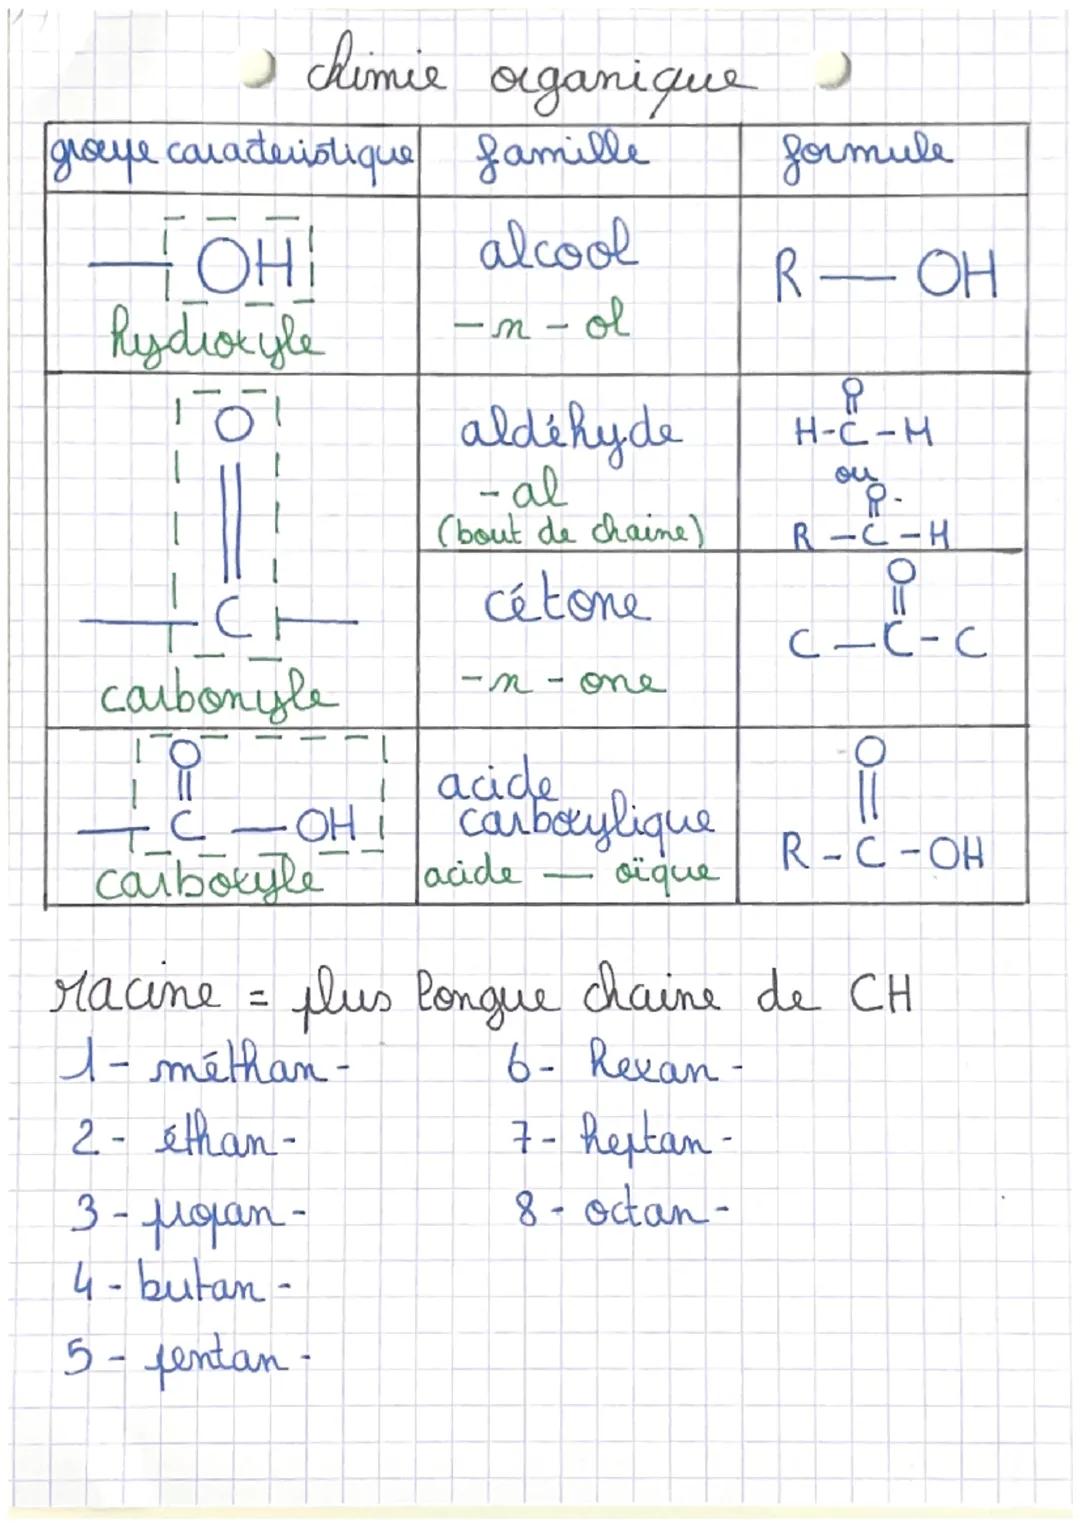 chimie organique
groupe caracteristique famille formule
OH alcool R — OH
hydroxyle -n-ol
O aldéhyde O
H-C-H
-al ou
O
(bout de chaine) R-C-H
C cétone O
C-C-C
carbonyle -n-one
O acide O
C — OH carboxylique R-C-OH
carboxyle acide — oïque
racine = plus longue chaine de CH
1- méthan- 6- hexan-
2- éthan- 7- heptan-
3- propan- 8- octan-
4- butan-
5- pentan-